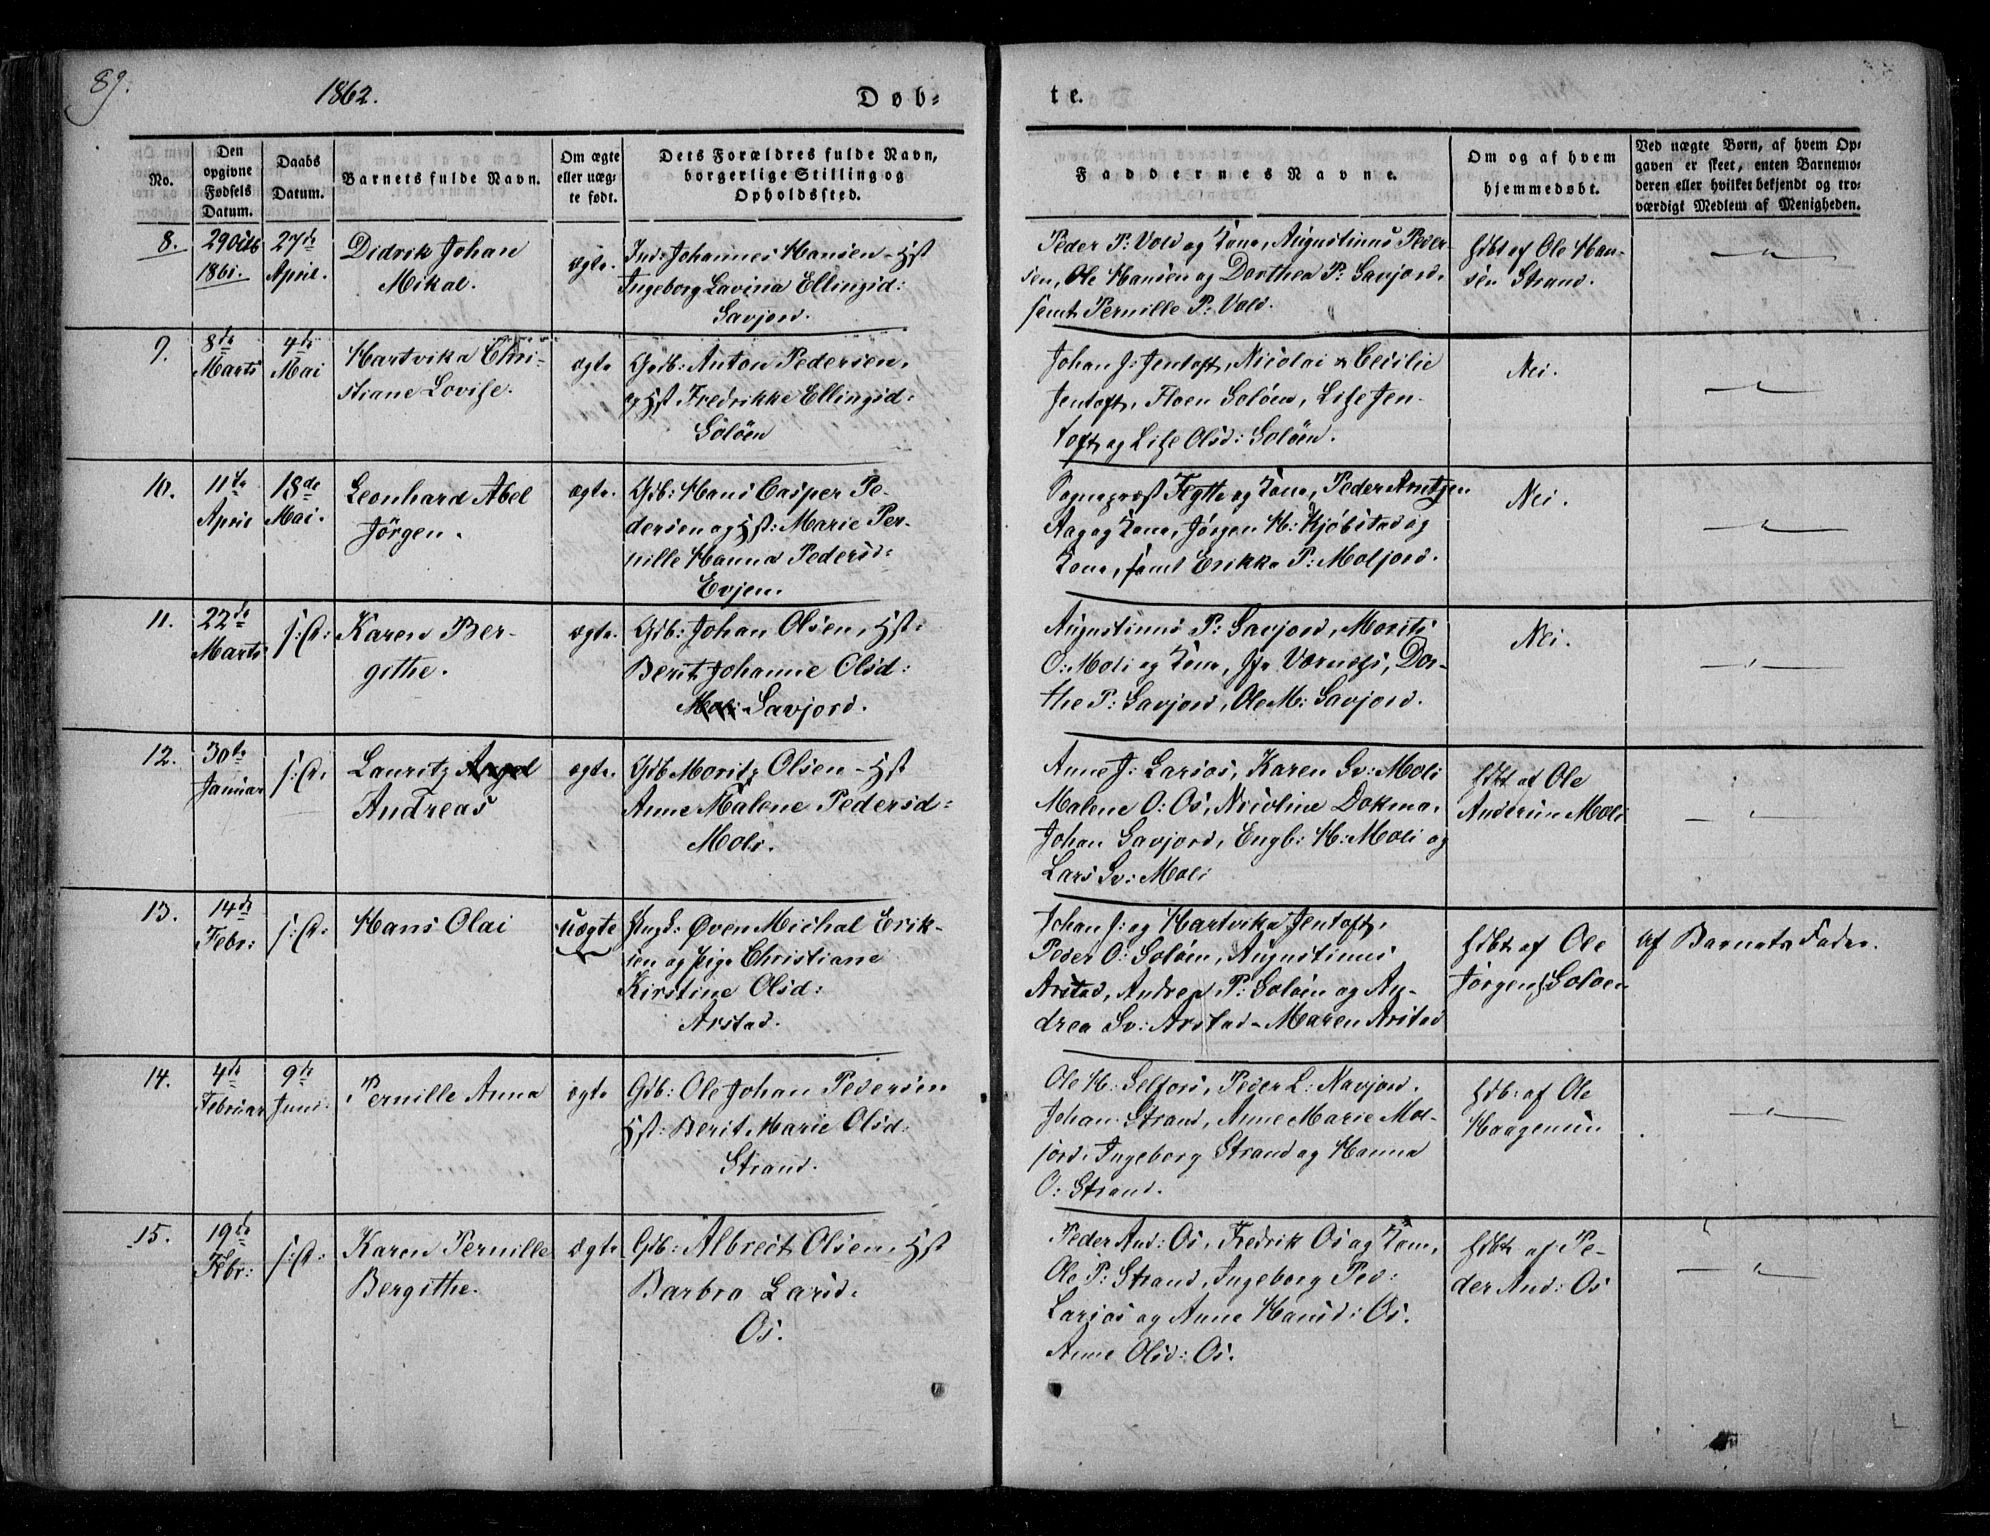 89.
1862.
Døb-
te.
No.
Den opgivne Fødsels Datum.
Daabs Datum.
Barnets fulde Navn.
Om ægte eller uægte født.
Dets Forældres fulde Navn, borgerlige Stilling og Opholdssted.
Faddernes Navne.
Om og af hvem hjemmedøbt.
Ved uægte Børn, af hvem Opgaven er skeet, enten Barnemoderen eller hvilket bekjendt og troværdigt Medlem af Menigheden.
8.
29 Octb
1861.
27de
April.
Didrik Johan
Mikal.
ægte.
Ind: Johannes Hansen - Hst
Ingeborg Lavina Ellingsd:
Savjord.
Peder P: Vold og Kone, Augustinus Peder-
sen, Ole Hansen og Dorthea P: Savjord,
samt Pernille P: Vold.
Hdbt af Ole Han-
sen Strand.
9.
8de
Marts
4de
Mai
Hartvika Chri-
stiane Lovise.
ægte
Gdb: Anton Pedersen,
og Hst Fredrikke Ellingsd:
Soløen
Johan J: Jentoft, Nicolai & Cecilie
Jentoft, Floer Soløen, Lise Jen-
toft og Lise Olsd: Soløen.
Nei.
10.
11te
April
18de
Mai.
Leonhard Abel
Jörgen.
ægte.
Gdb: Hans Casper Pe-
dersen og Hst: Marie Per-
nille Hanna Pedersd:
Evjen.
Sognepræst Flytte og Kone, Peder Arntzen
Aag og Kone, Jørgen H: Kjøbstad og
Kone, samt Erikka P: Moljord.
Nei.
11.
22de
Marts
s: D:
Karen Ber-
githe.
ægte.
Gdb: Johan Olsen, Hst:
Berit Johanne Olsd:
Savjord.
Augustinus P: Savjord, Morits
O: Moli og Kone, Dor-
the P: Savjord, Ole M: Savjord.
Nei.
12.
30te
Januar
s: D:
Lauritz
Andreas
ægte.
Gdb Moritz Olsen - Hst
Anne Malene Pedersd:
Moli.
Anne J: Larsos, Karen Sv: Moli
Malene O: Os, Nicoline Dokmo,
Johan Savjord, Engb: H: Moli og
Lars Sv: Moli
Hdbt af Ole
Andersen Moli
13.
14de
Febr:
s: D:
Hans Olai
uægte
Ungk: Øven Michal Erik-
sen og Pige Christiane
Kirstine Olsd:
Arstad.
Johan J: og Hartvika Jentoft,
Peder O: Soløen, Augustinus
Arstad, Andreas P: Soløen og An-
drea Sv: Arstad - Maren Arstad
Hdbt af Ole
Jørgens: Soloen
Af Barnets Fader.
14.
4de
Februar
9de
Juni
Pernille Anna
ægte
Gdb: Ole Johan Pedersen
Hst: Berit Marie Olsd:
Strand.
Ole H: Selfors, Peder L: Navjord,
Johan Strand, Anne Marie Mol-
jord, Ingeborg Strand og Hanna
O: Strand.
Hdb: af Ole
Haagensen
15.
19de
Febr:
s: D:
Karen Pernille
Bergithe.
ægte
Gdb: Albrect Olsen, Hst
Barbro Larsd.
Os.
Peder And: Os, Fredrik Os og Kone,
Ole P: Strand, Ingeborg Ped:
Larsos og Anne Hansd: Os.
Anne Olsd: Os.
Hdbt af Pe-
der And: Os